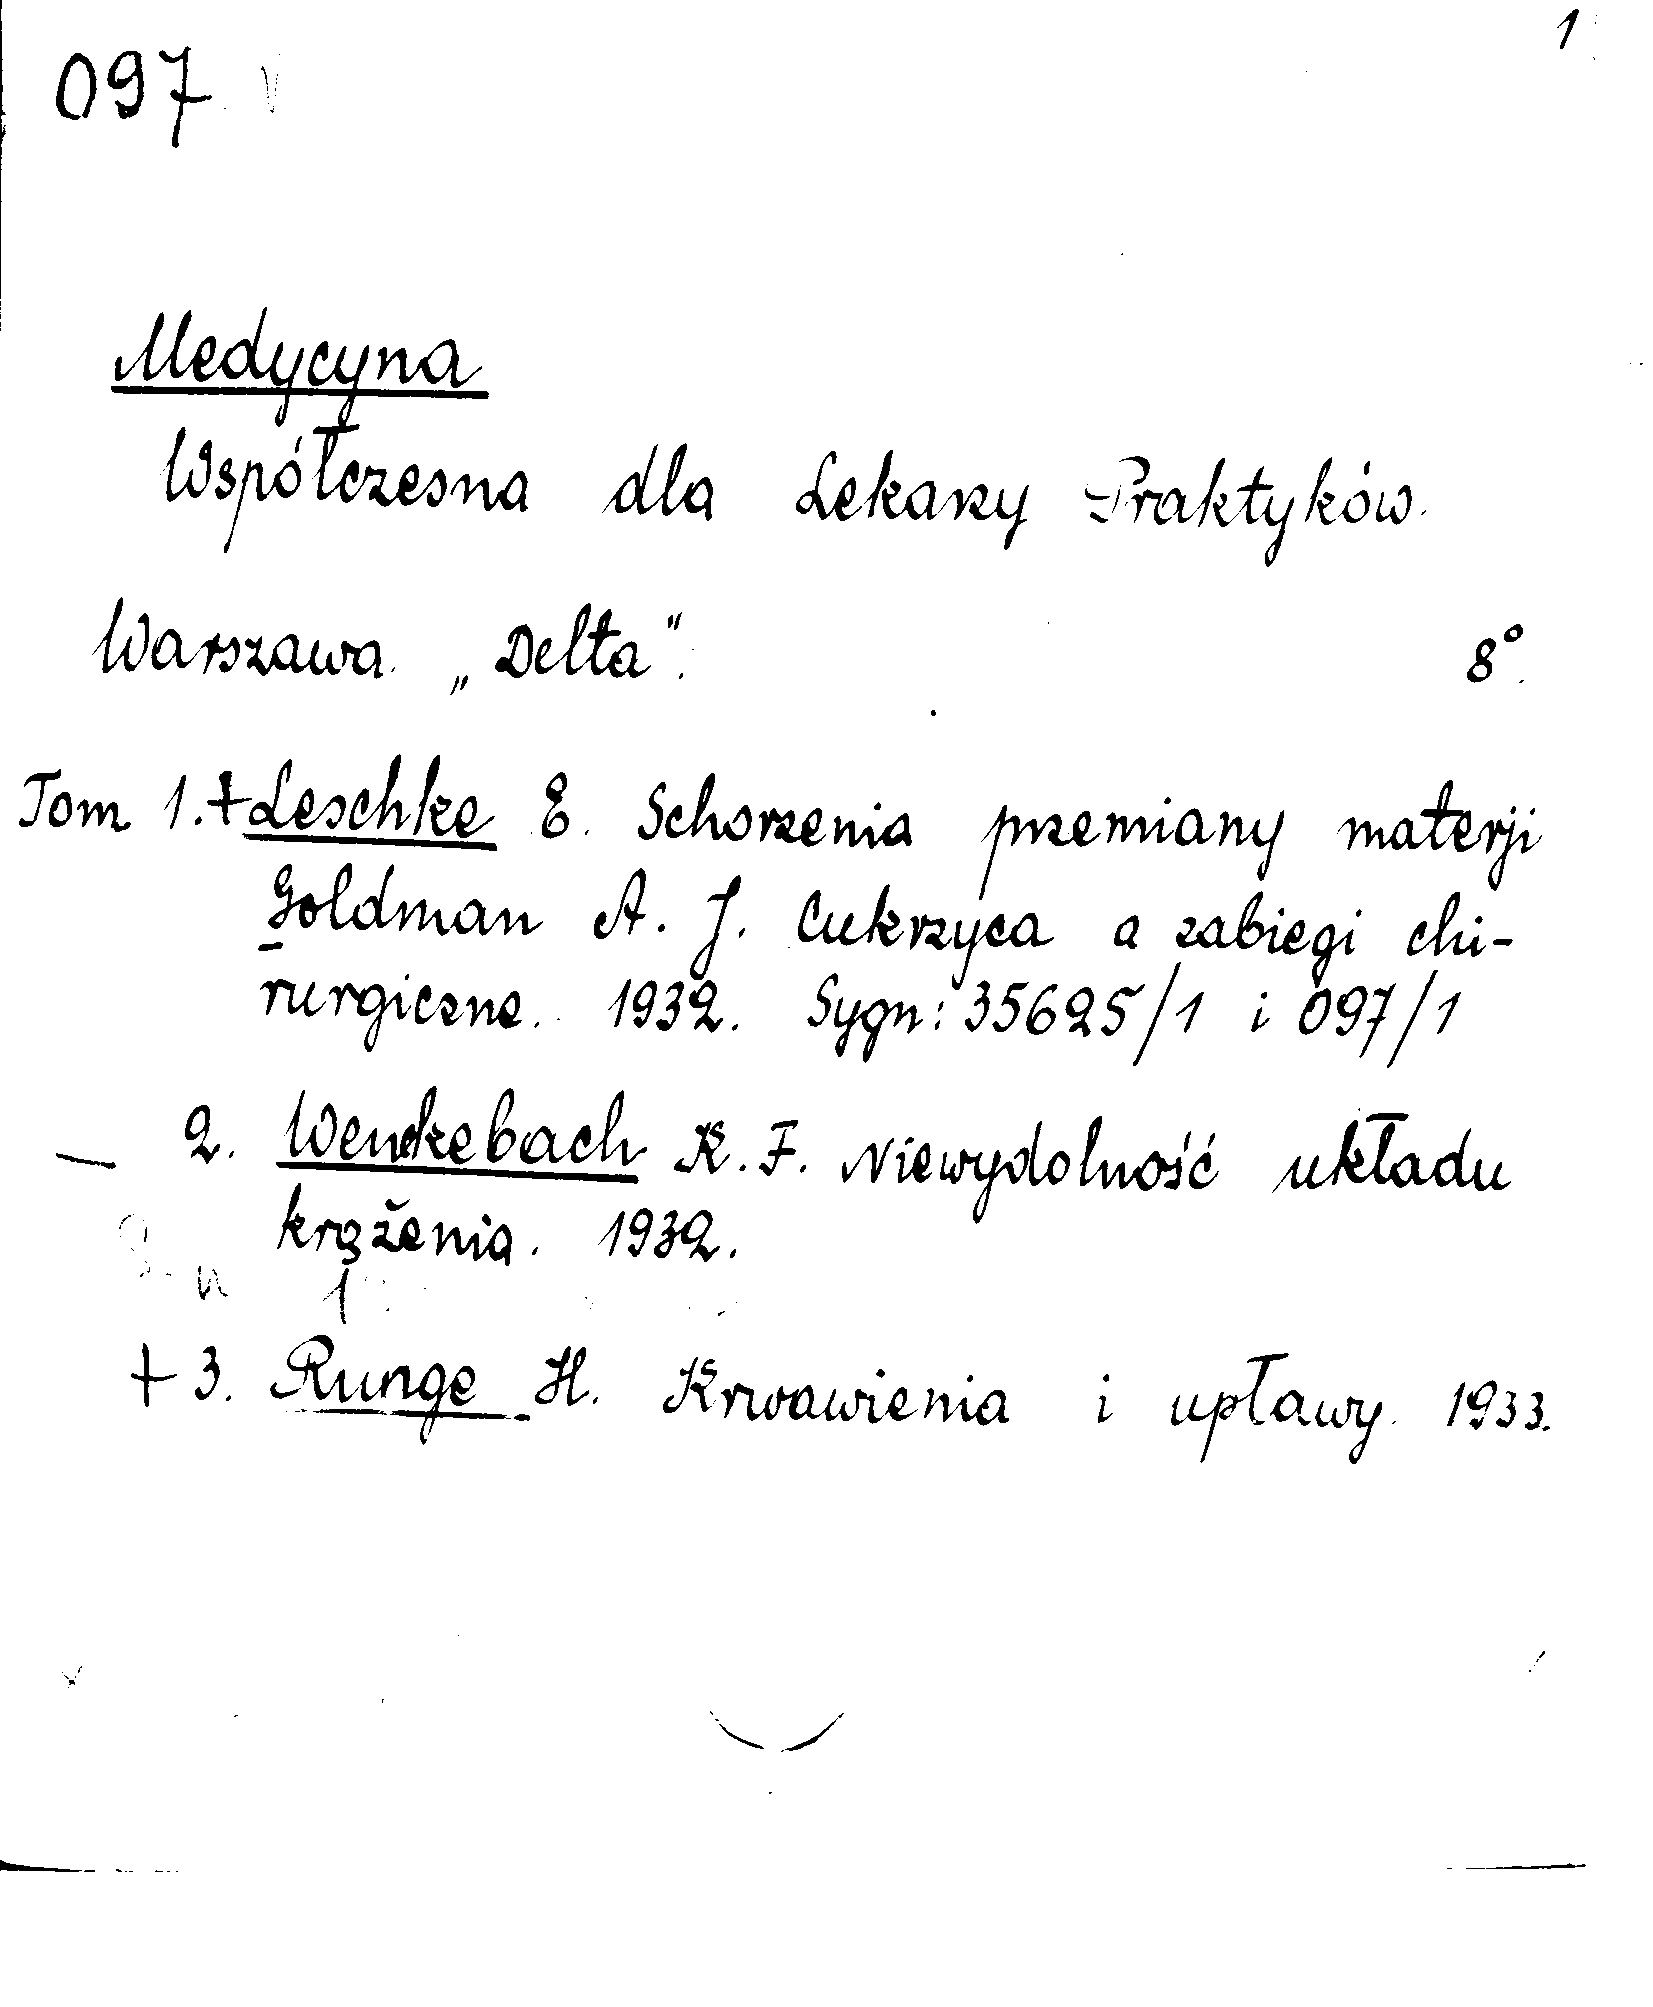 1
097
Medycyna
Współczesna dla Lekarzy Praktyków.
Warszawa. „Delta". 8°.
Tom 1.+Leschke E. Schorzenia przemiany materji
Goldman A. J. Cukrzyca a zabiegi chi-
rurgiczne. 1932. Sygn: 35625/1 i 097/1
— 2. Wenckebach K. F. Niewydolność układu
krążenia. 1932.
+ 3. Runge H. Krwawienia i upławy. 1933.